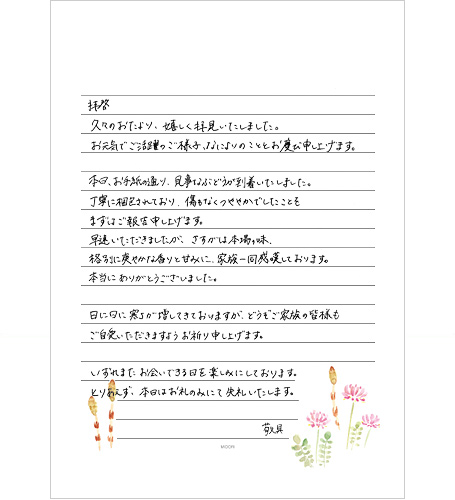 拝啓
久々のおたより、嬉しく拝見いたしました。
お元気でご活躍のご様子、なによりのこととお慶び申し上げます。
本日、お手紙の通り、見事なぶどうが到着いたしました。
丁寧に梱包されており、傷もなくつややかでしたことも
まずはご報告申し上げます。
早速いただきましたが、さすがは本場の味、
格別に爽やかな香りと甘みに、家族一同感嘆しております。
本当にありがとうございました。
日に日に寒さが増してきておりますが、どうぞご家族の皆様も
ご自愛いただきますようお祈り申し上げます。
いずれまたお会いできる日を楽しみにしております。
とりあえず、本日はお礼のみにて失礼いたします。
敬具
MIDORI